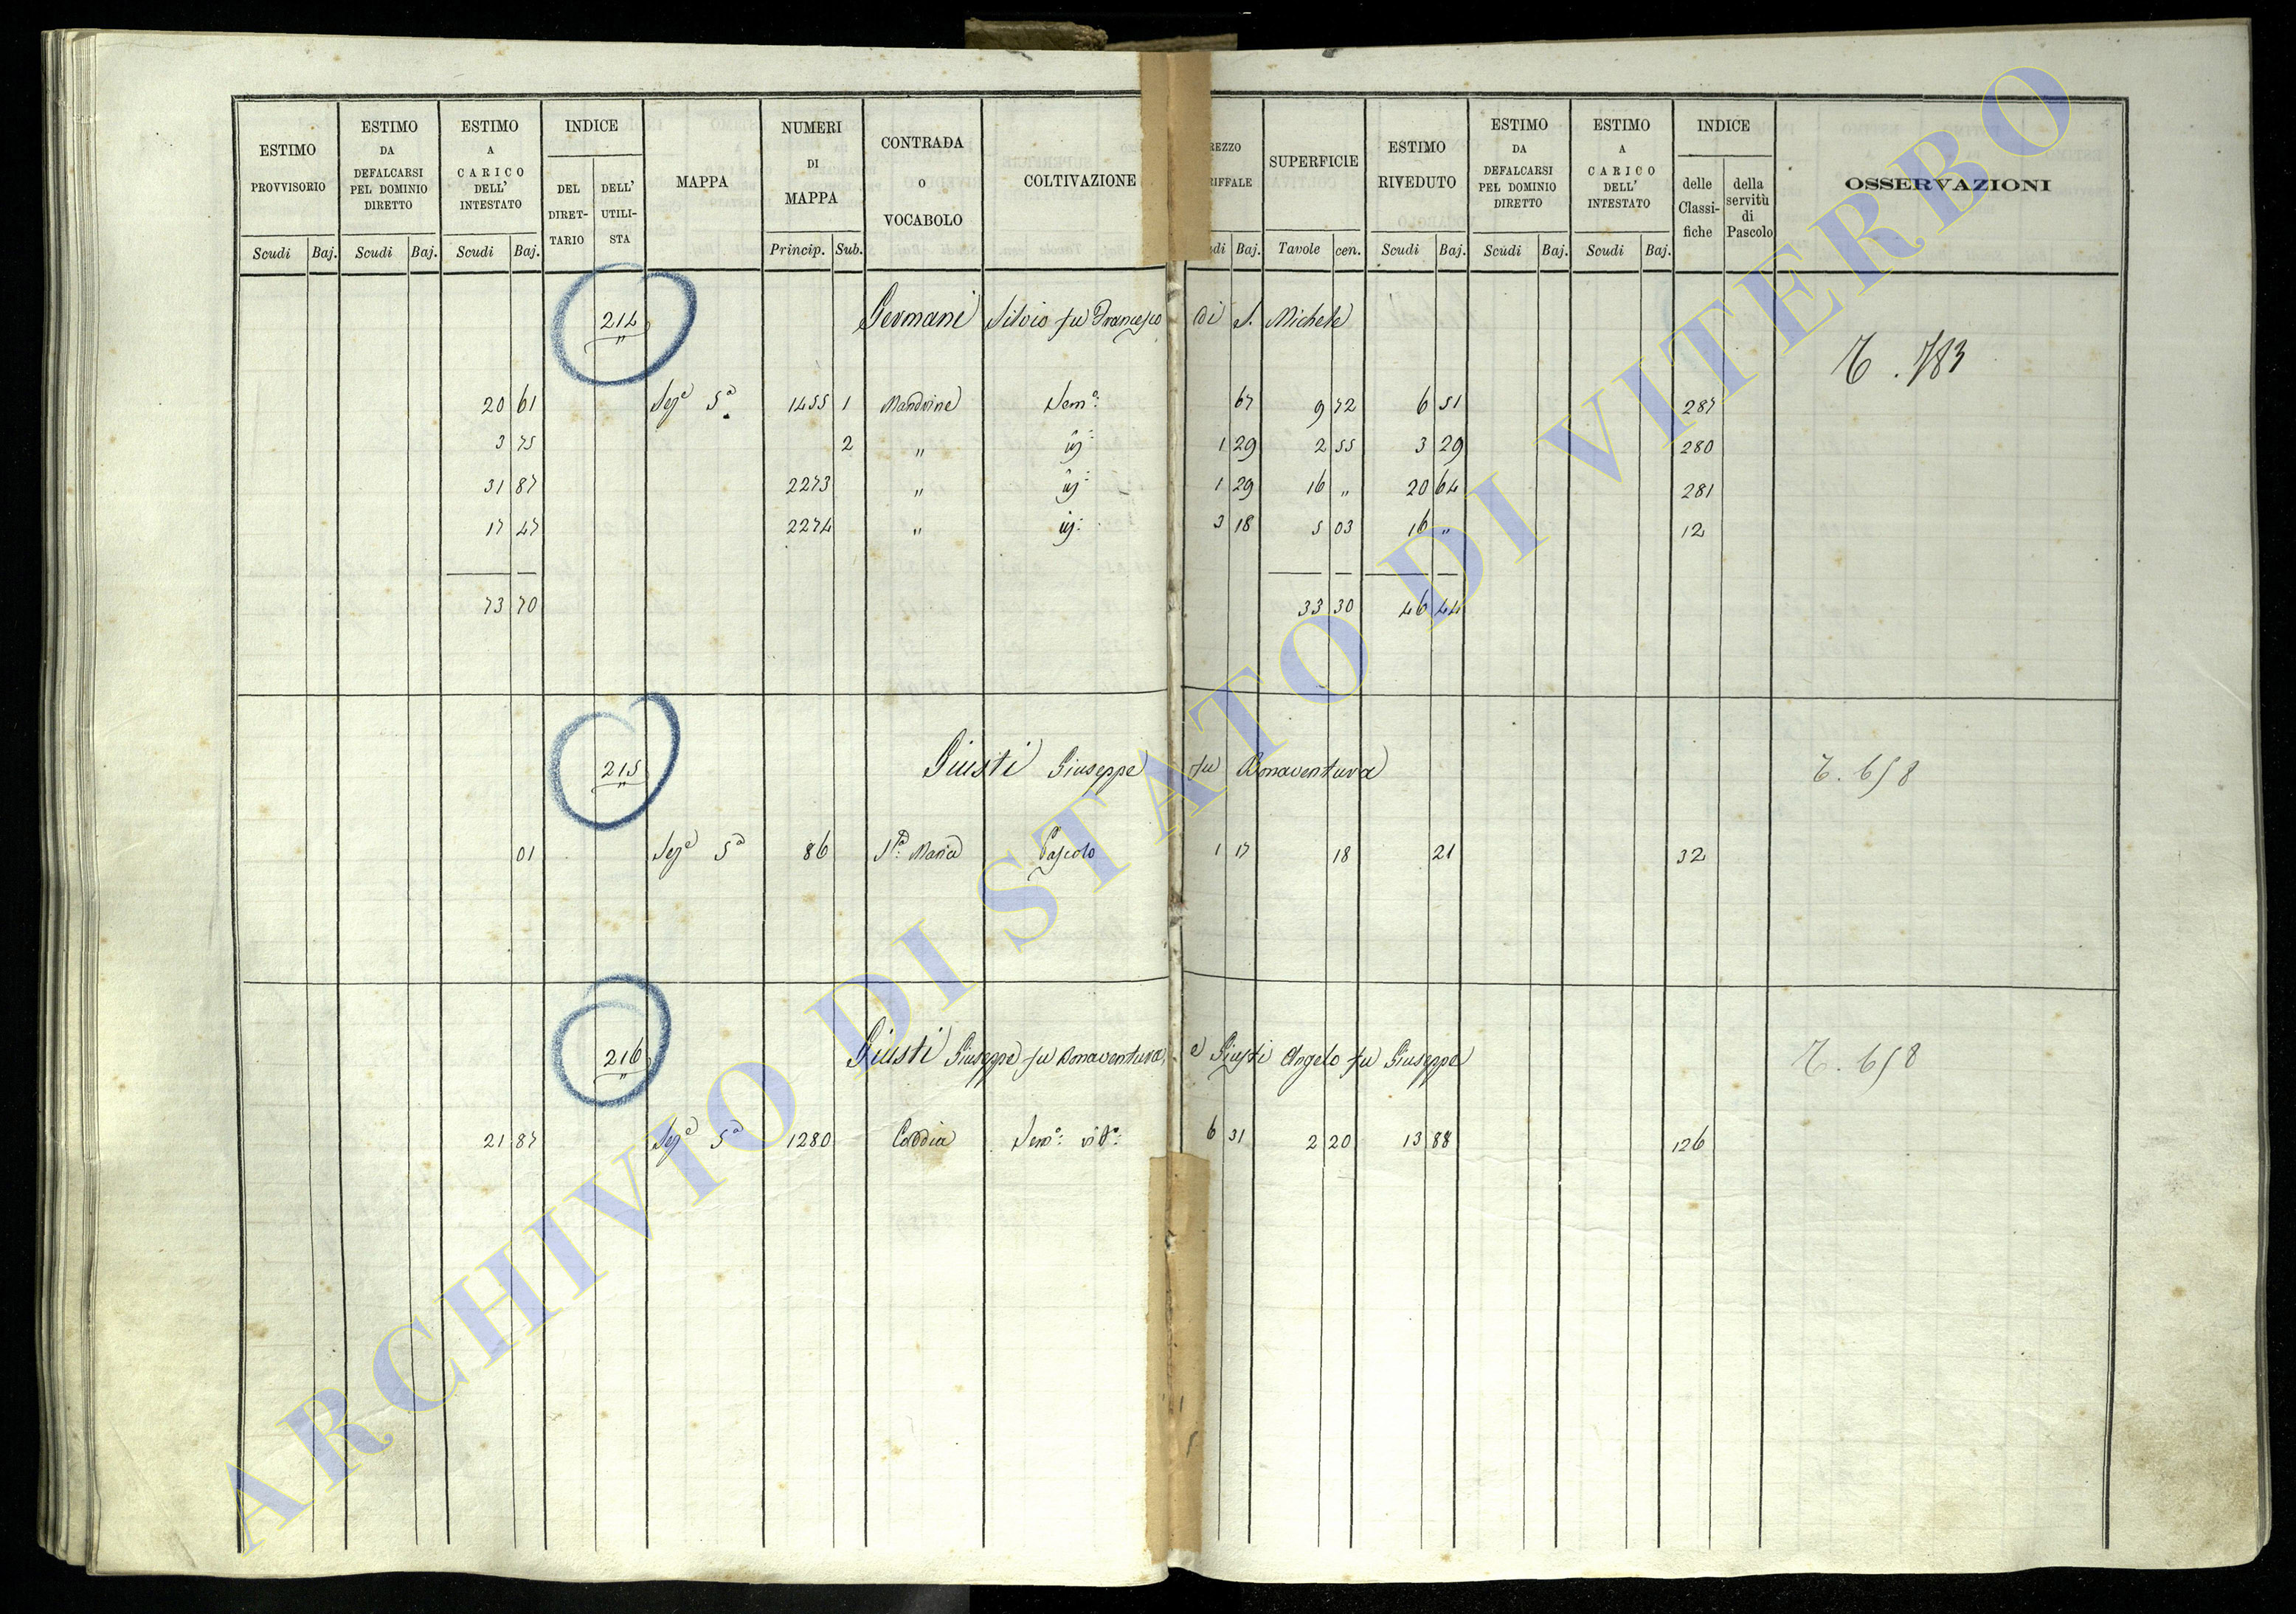 ESTIMO PROVVISORIO Scudi Baj.
ESTIMO DA DEFALCARSI PEL DOMINIO DIRETTO Scudi Baj.
ESTIMO A CARICO DELL' INTESTATO Scudi Baj.
INDICE DEL DIRET-TARIO DELL' UTILI-STA
MAPPA
NUMERI DI MAPPA Princip. Sub.
CONTRADA O VOCABOLO
COLTIVAZIONE
REZZO RIFFALE di Baj.
SUPERFICIE Tavole cen.
ESTIMO RIVEDUTO Scudi Baj.
ESTIMO DA DEFALCARSI PEL DOMINIO DIRETTO Scudi Baj.
ESTIMO A CARICO DELL' INTESTATO Scudi Baj.
INDICE delle Classi-fiche della servitù di Pascolo
OSSERVAZIONI
214 Germani Silvio fu Francesco di S. Michele
T. 783
20 61 Sez.e 5a 1455 1 Mandrine Sem.o 67 9 72 6 51 287
3 75 2 " id: 1 29 2 55 3 29 280
31 87 2273 " id: 1 29 16 " 20 64 281
17 47 2274 " id: 3 18 5 03 16 " 12
73 70 33 30 46 44
215 Giusti Giuseppe fu Bonaventura T. 658
01 Sez.e 5a 86 S.a Maria Pascolo 1 17 18 21 32
216 Giusti Giuseppe fu Bonaventura, e Giusti Angelo fu Giuseppe T. 658
21 87 Sez.e 5a 1280 Sem.o vit.o: 6 31 2 20 13 88 126
ARCHIVIO DI STATO DI VITERBO